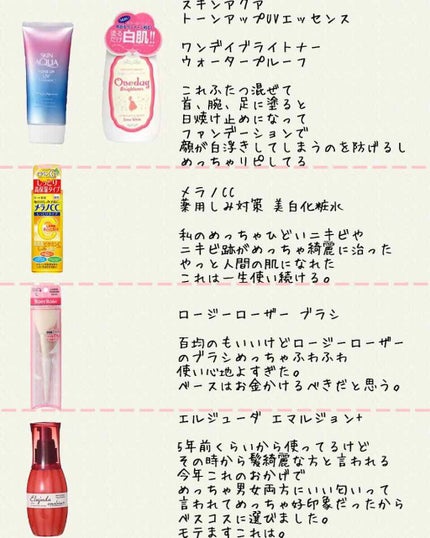 スキンアクア
トーンアップUVエッセンス
ワンデイブライトナー
ウォータープルーフ
これふたつ混ぜて
首、腕、足に塗ると
日焼け止めになって
ファンデーションで
顔が白浮きしてしまうのを防げるし
めっちゃリピしてる
SKIN
AQUA
TONE UP
UV
まるだけ白肌!!
Oneday
Brightener
メラノCC
薬用しみ対策 美白化粧水
私のめっちゃひどいニキビや
ニキビ跡がめっちゃ綺麗に治った
やっと人間の肌になれた
これは一生使い続ける。
しっとり
高保湿タイプ
メラノCC
ロージーローザー ブラシ
百均のもいいけどロージーローザー
のブラシめっちゃふわふわ
使い心地よすぎた。
ベースはお金かけるべきだと思う。
Rosy Rosa
エルジューダ エマルジョン+
5年前くらいから使ってるけど
その時から髪綺麗な方と言われる
今年これのおかげで
めっちゃ男女両方にいい匂いって
言われてめっちゃ好印象だったから
ベスコスに選びました。
モテますこれは。
Elujuda
emulsion+